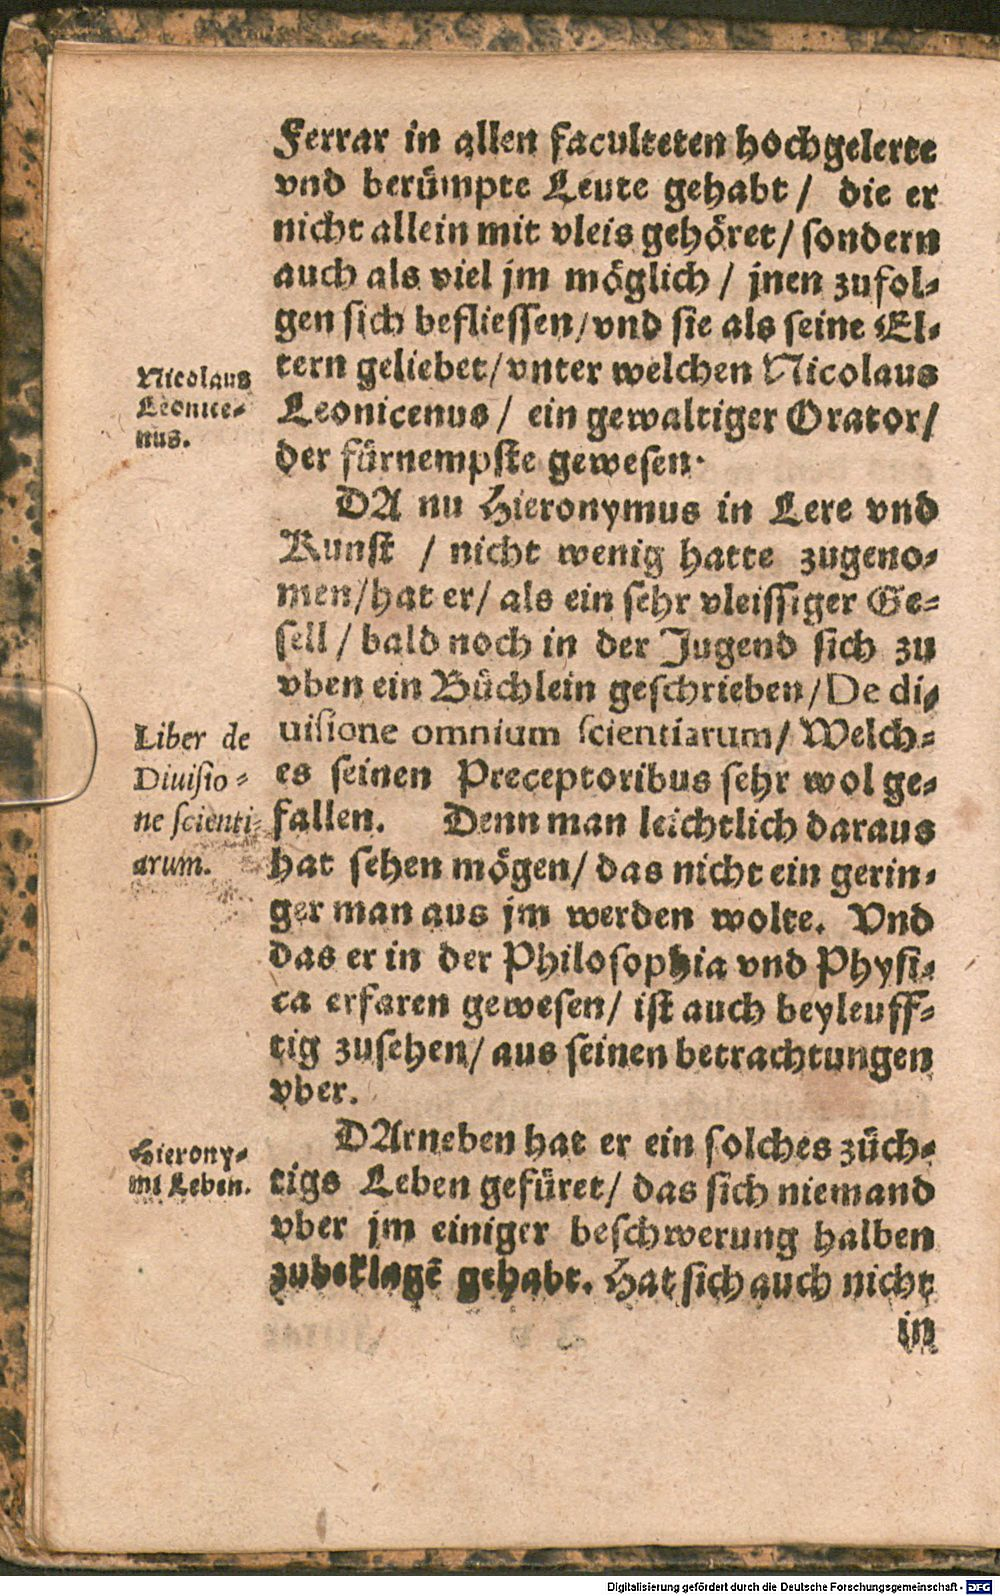 Ferrar in allen faculteten hochgelerte
vnd berümpte Leute gehabt / die er
nicht allein mit vleis gehöret / sondern
auch als viel jm möglich / jnen zufol-
gen sich befliessen / vnd sie als seine El-
tern geliebet / vnter welchen Nicolaus
Leonicenus / ein gewaltiger Orator /
der fürnempste gewesen.
Nicolaus
Leonice-
nus.
DA nu Hieronymus in Lere vnd
Kunst / nicht wenig hatte zugeno-
men / hat er / als ein sehr vleissiger Ge-
sell / bald noch in der Jugend sich zu
vben ein Büchlein geschrieben / De di-
uisione omnium scientiarum / Welch-
es seinen Preceptoribus sehr wol ge-
fallen. Denn man leichtlich daraus
hat sehen mögen / das nicht ein gerin-
ger man aus jm werden wolte. Vnd
das er in der Philosophia vnd Physi-
ca erfaren gewesen / ist auch beyleuff-
tig zusehen / aus seinen betrachtungen
vber.
Liber de
Diuisio-
ne scienti-
arum.
DArneben hat er ein solches züch-
tigs Leben gefüret / das sich niemand
vber jm einiger beschwerung halben
zubeklagē gehabt. Hat sich auch nicht
in
Hierony-
mi Leben.
Digitalisierung gefördert durch die Deutsche Forschungsgemeinschaft - DFG